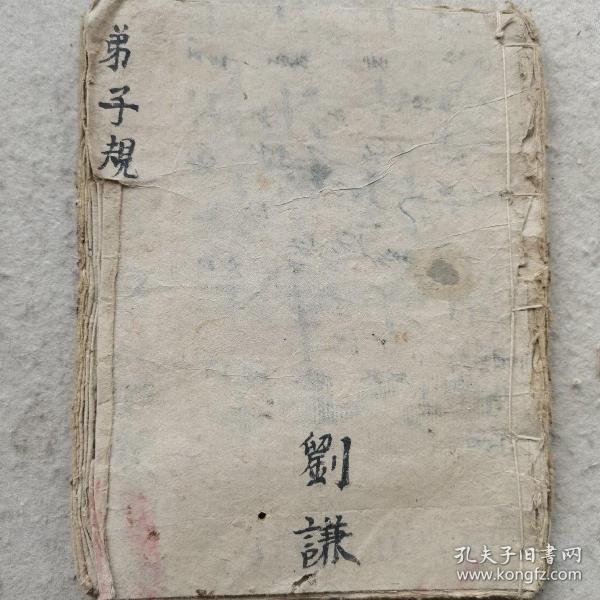 弟子規
劉謙
孔夫子旧书网
www.kongfz.com